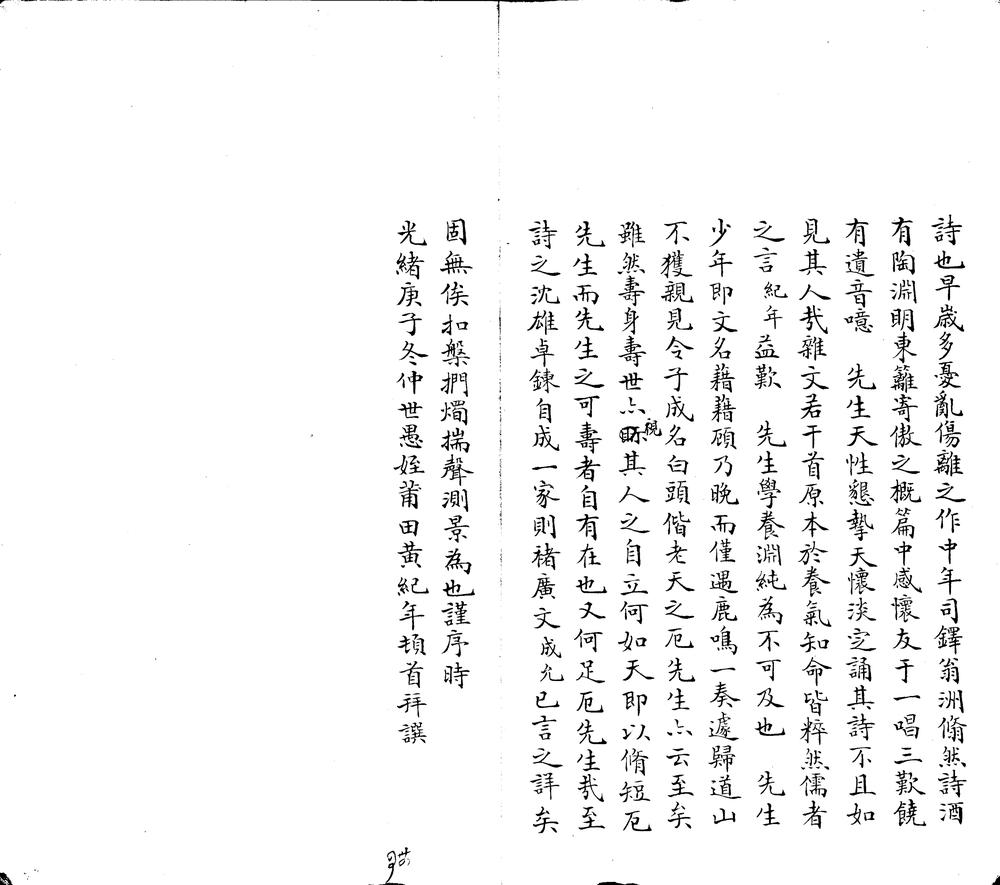 詩也早歲多憂亂傷離之作中年司鐸翁洲翛然詩酒
有陶淵明東籬寄傲之概篇中感懷友于一唱三歎饒
有遺音噫 先生天性懇摯天懷淡定誦其詩不且如
見其人哉雜文若干首原本於養氣知命皆粹然儒者
之言紀年益歎 先生學養淵純為不可及也 先生
少年即文名藉藉頋乃晚而僅遇鹿鳴一奏遽歸道山
不獲親見令子成名白頭偕老天之厄先生亦云至矣
雖然壽身壽世亦視其人之自立何如天即以脩短厄
先生而先生之可壽者自有在也又何足厄先生哉至
詩之沈雄卓鍊自成一家則褚廣文成允已言之詳矣
固無俟扣槃捫燭揣聲測景為也謹序時
光緒庚子冬仲世愚姪莆田黃紀年頓首拜譔